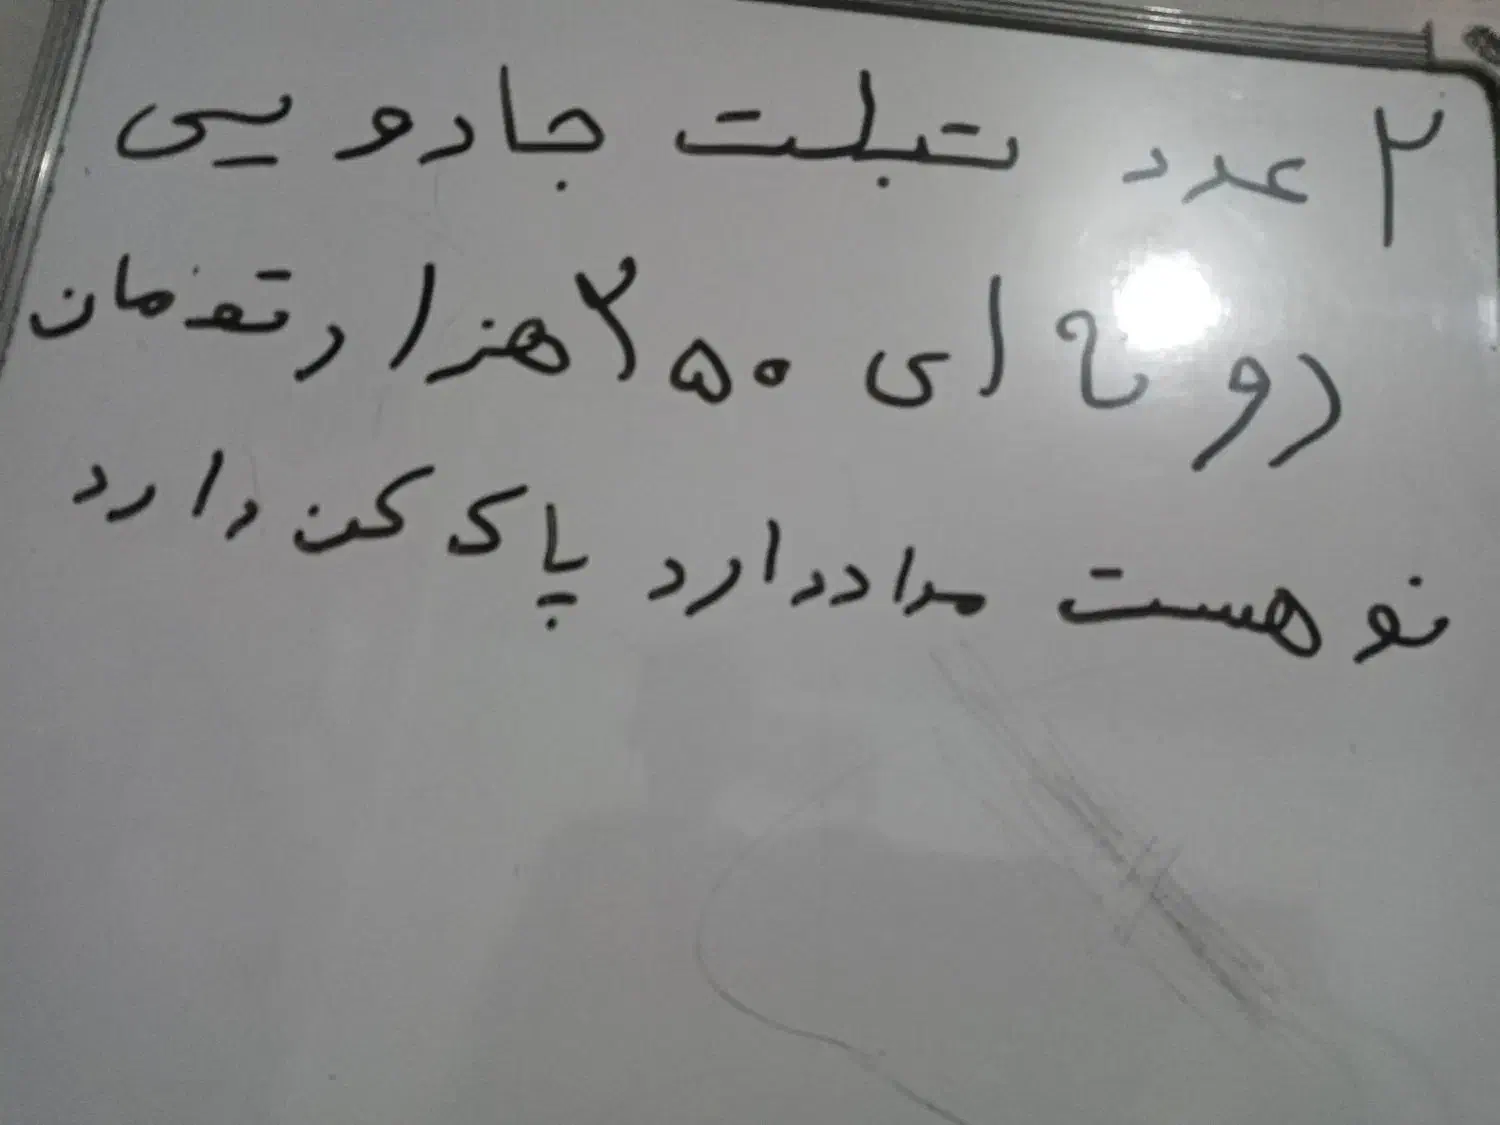 ۲ عدد تبلت جادویی
دونه ای ۲۵۰ هزار تومان
نو هست مداد دارد پاک کن دارد